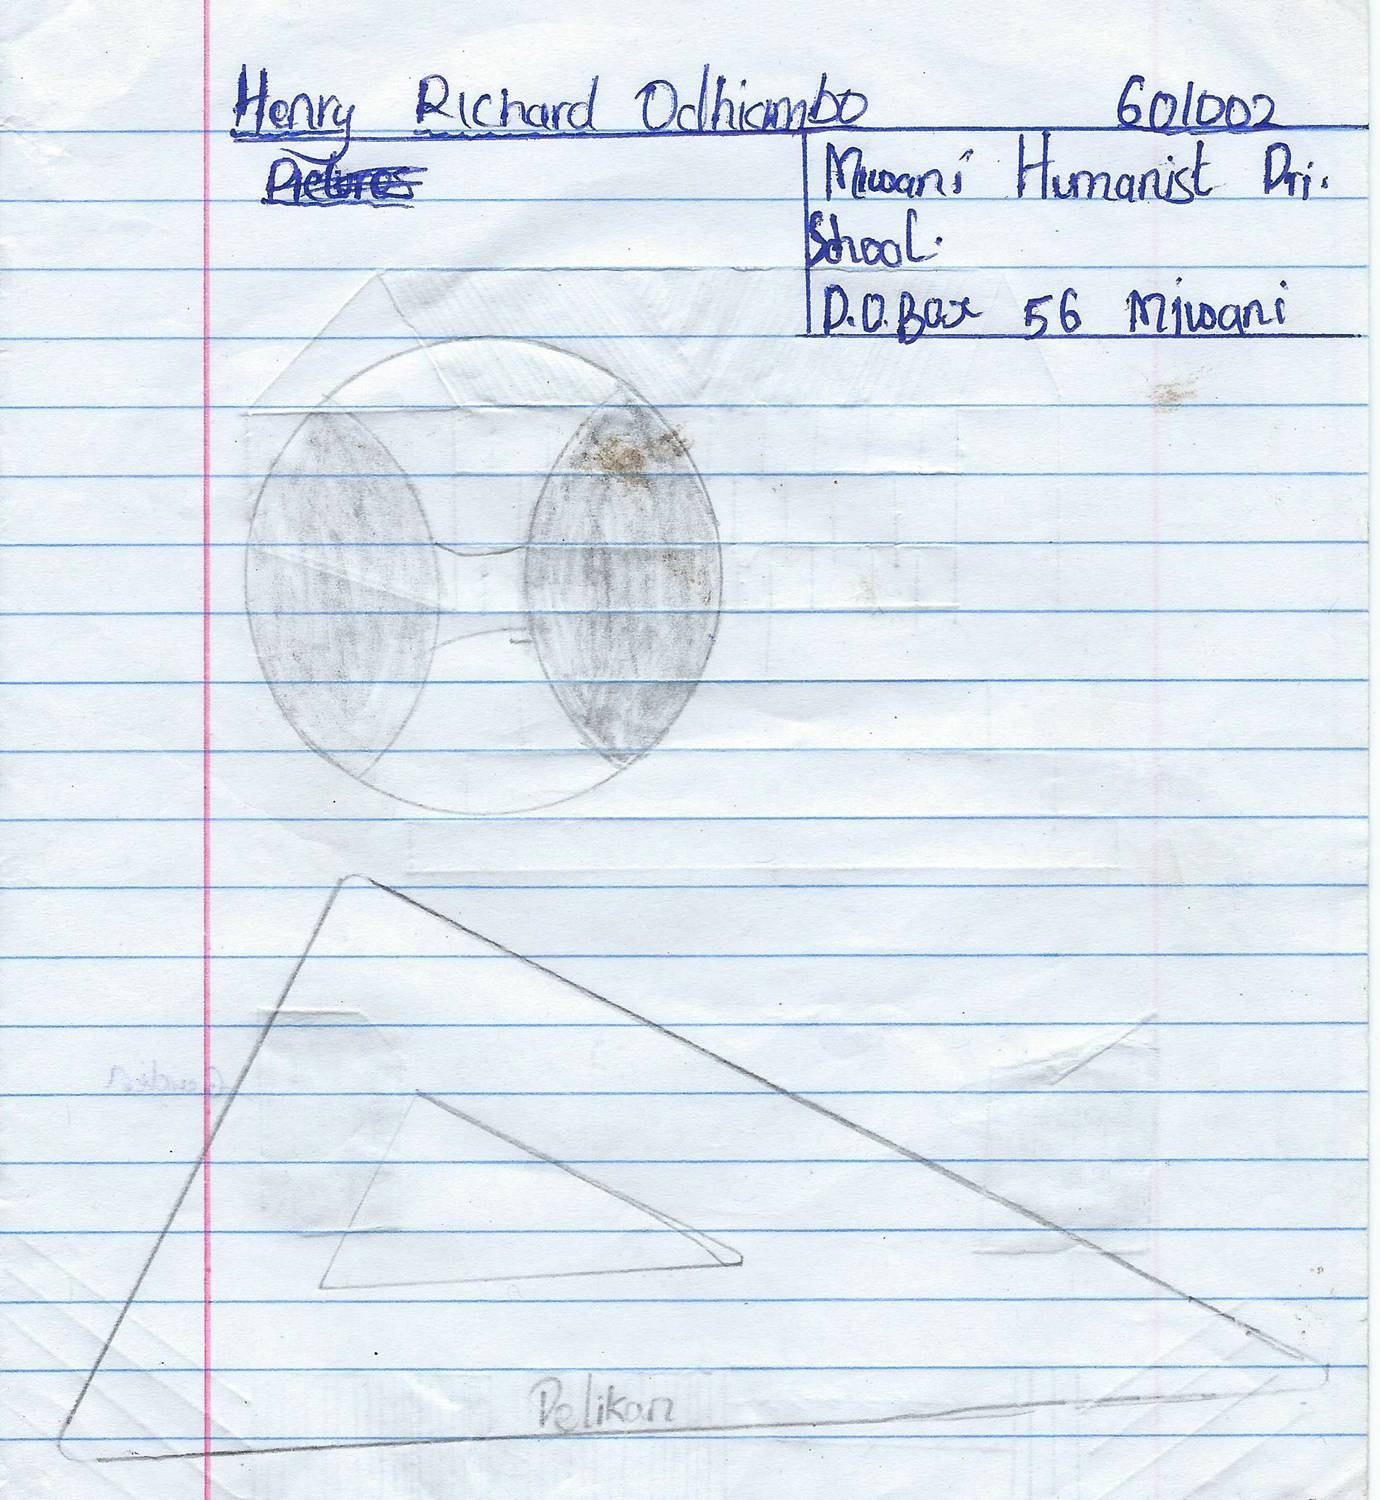 Henry Richard Odhiambo 601002
Pictures
Miwani Humanist Pri.
School.
P.O. Box 56 Miwani
Pelikan